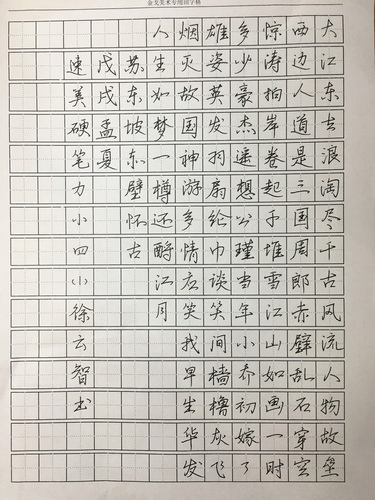 金龙美术专用田字格
大江东去浪淘尽千古风流人物故垒
西边人道是三国周郎赤壁乱石穿空
惊涛拍岸卷起千堆雪江山如画一时
多少豪杰遥想公瑾当年小乔初嫁了
雄姿英发羽扇纶巾谈笑间樯橹灰飞
烟灭故国神游多情应笑我早生华发
人生如梦一樽还酹江月
苏东坡赤壁怀古
戊戌孟夏
速美硬笔力小四(1)徐云智书